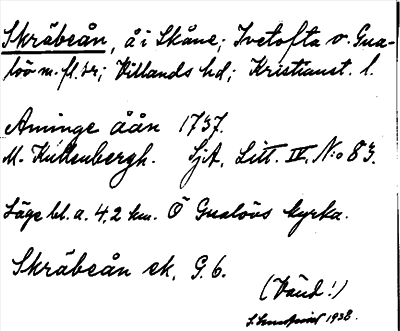 Skräbeån, å i Skåne; Ivetofta o. Gua-
löv m. fl. sr; Villands hd; Kristianst. l.
Aminge åån 1737.
M. Kullenbergh. SjA, Litt. IV, N:o 83.
Läge bl. a. 4,2 km. Ö Gualövs kyrka.
Skräbeån ek. G. 6.
(Vänd!)
1938.